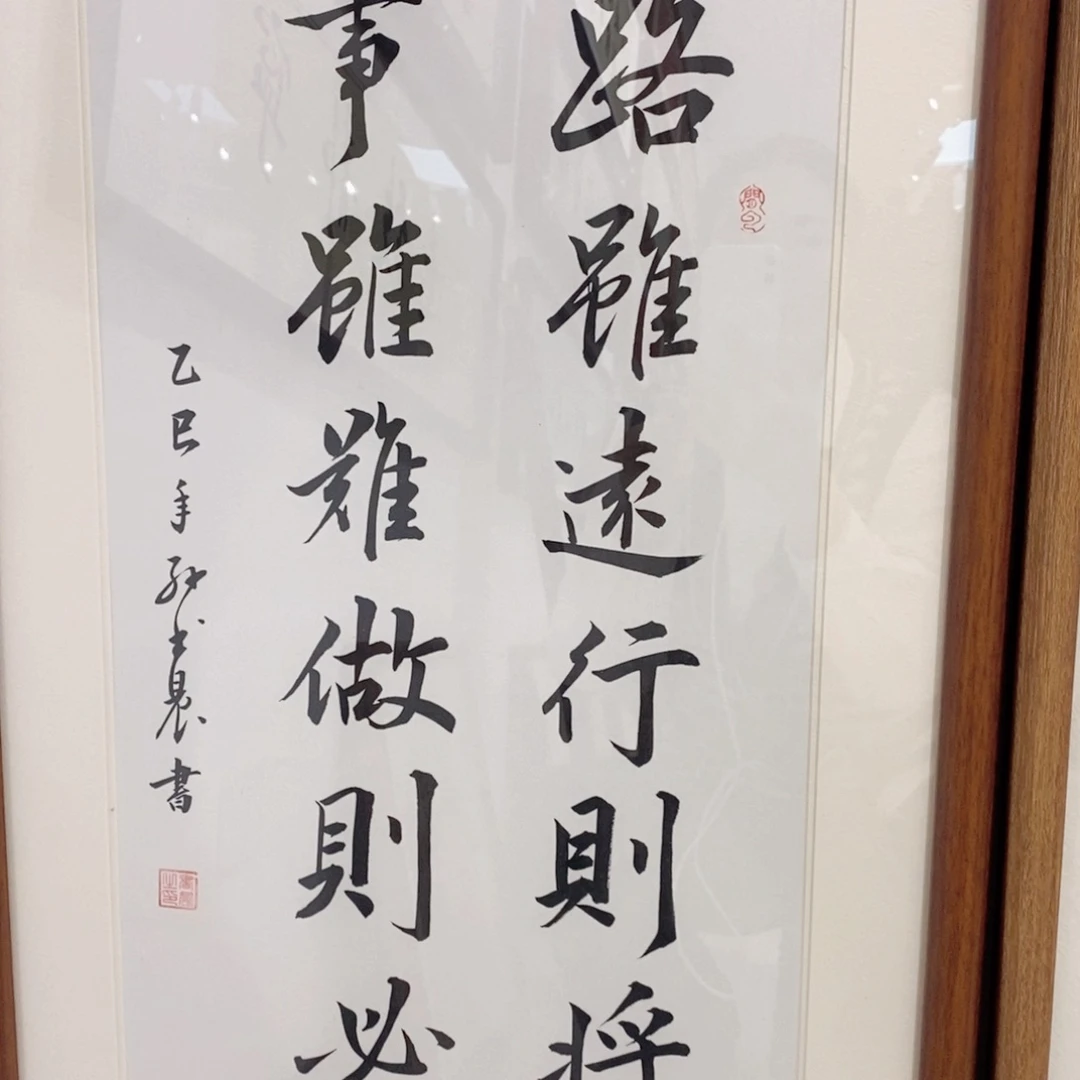 路雖遠行則將
事雖難做則必
乙巳年孙书晨書